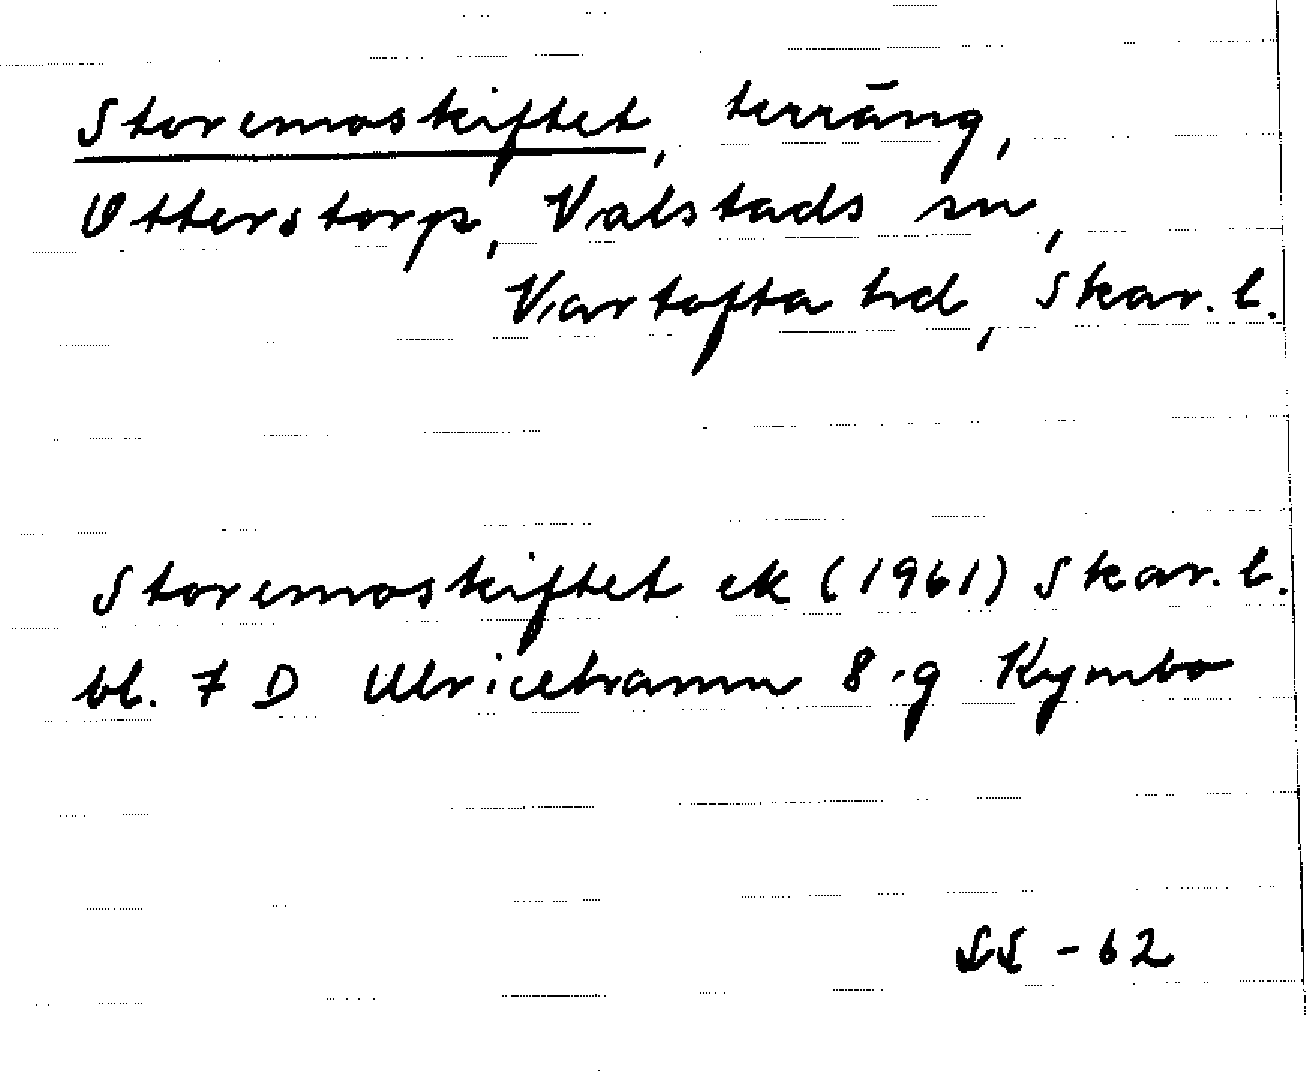 Storemoskiftet, terräng,
Utterstorp, Valstads sn,
Vartofta hd, Skar. l.
Storemoskiftet ek (1961) Skar. l.
bl. 7 D Ulricehamn 8 g Kymbo
SS - 62